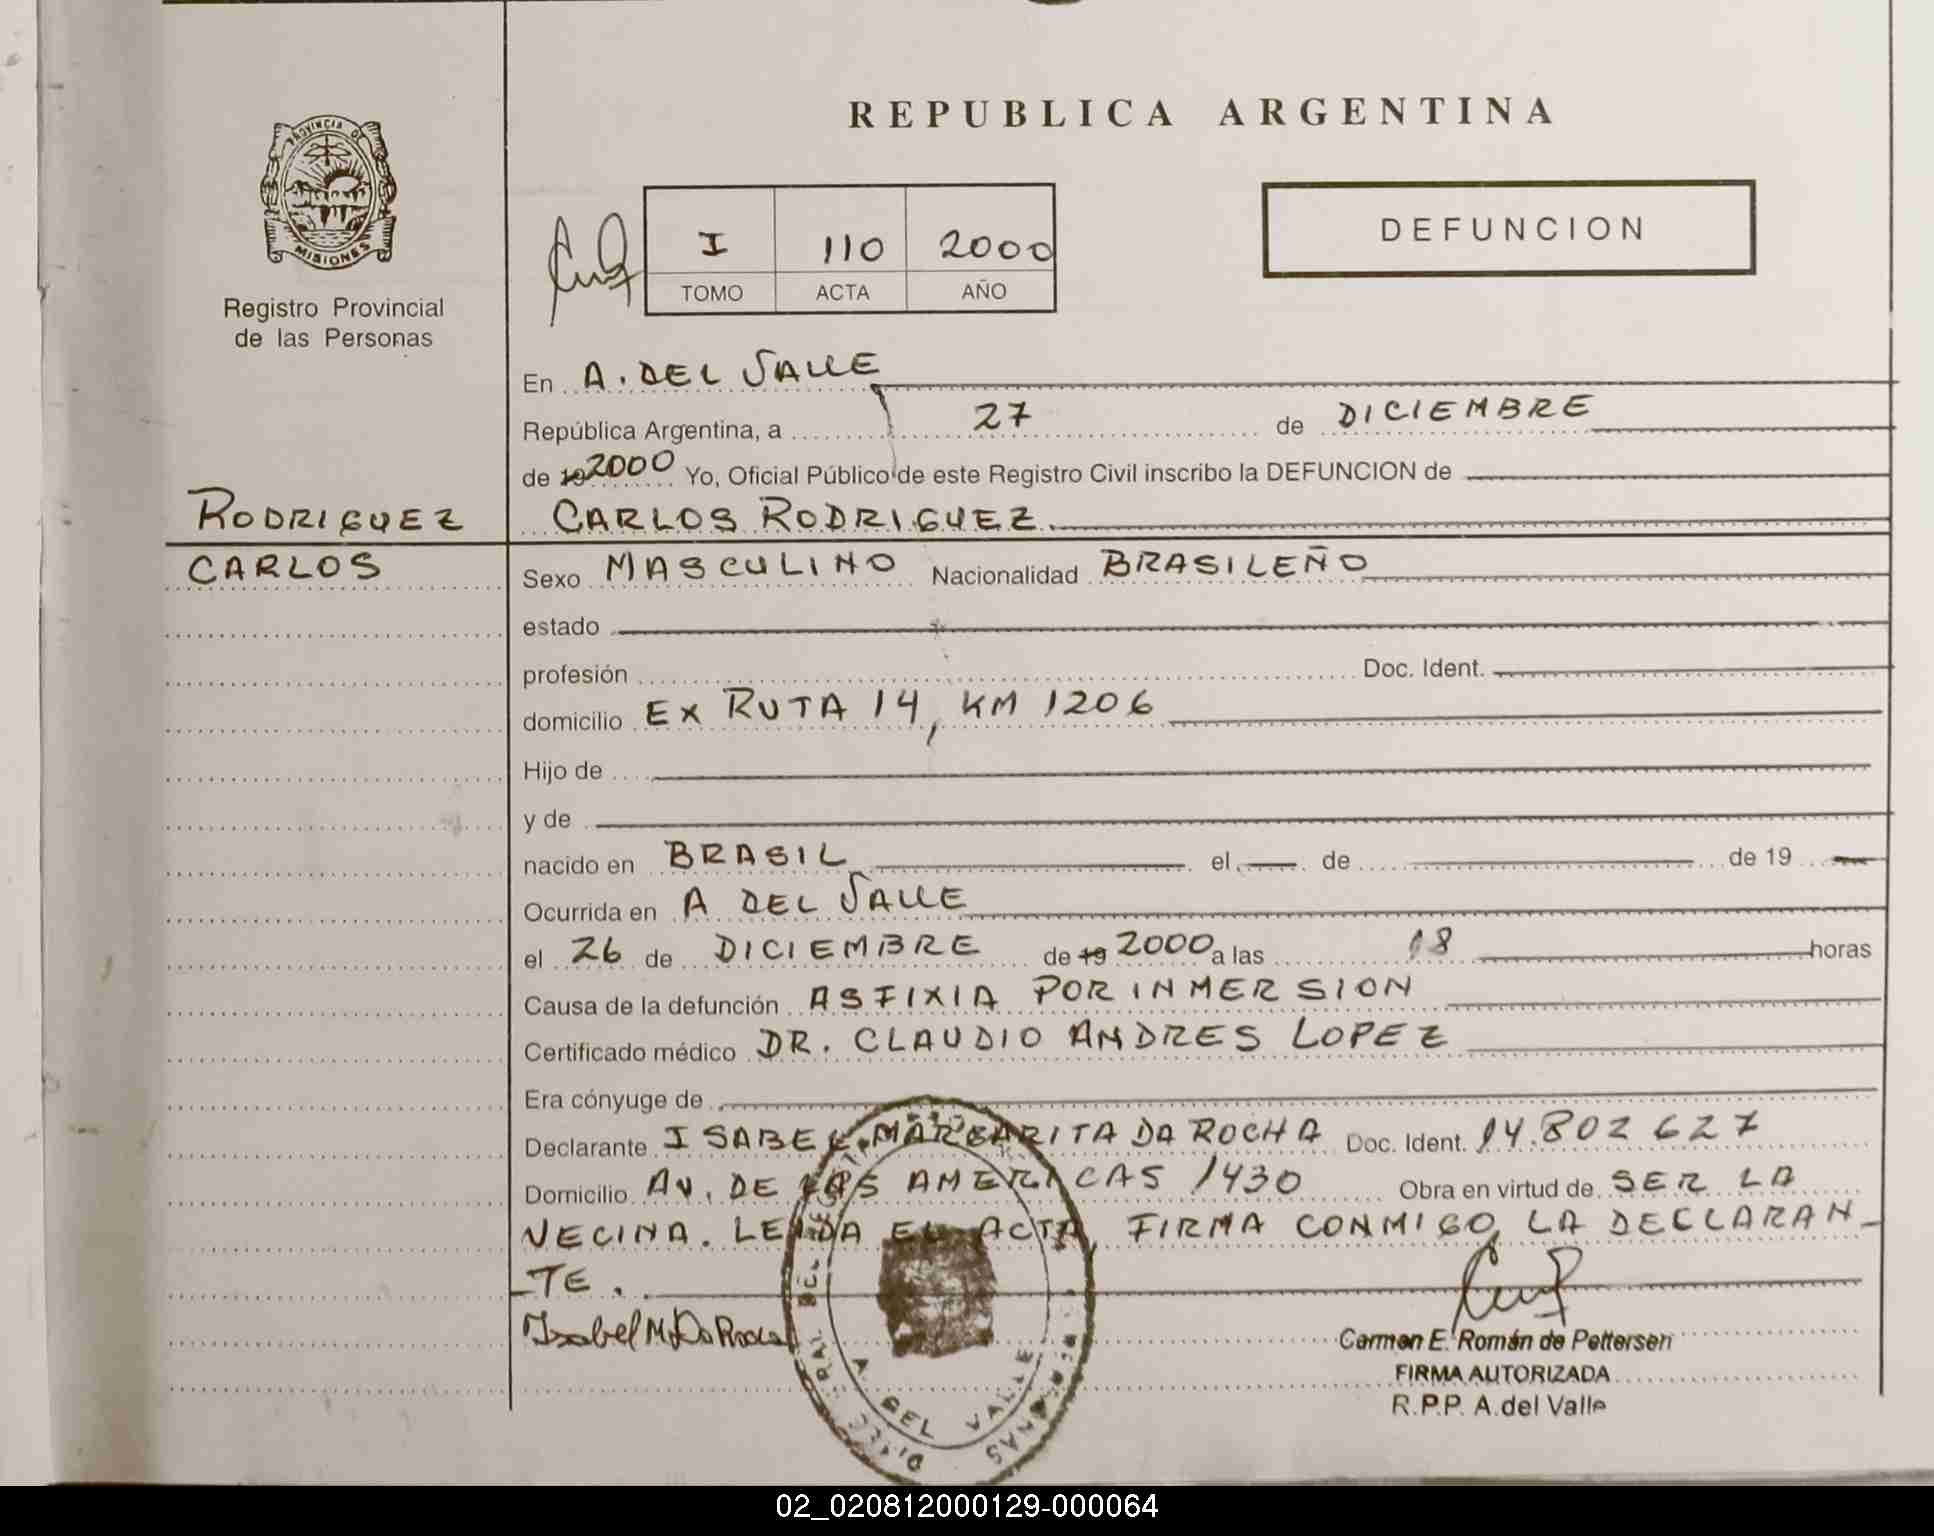 REPUBLICA ARGENTINA
PROVINCIA DE
MISIONES
Registro Provincial
de las Personas
DEFUNCION
I 110 2000
TOMO ACTA AÑO
En A. DEL VALLE
República Argentina, a 27 de DICIEMBRE
de 19 2000 Yo, Oficial Público de este Registro Civil inscribo la DEFUNCION de
RODRIGUEZ
CARLOS
CARLOS RODRIGUEZ.
Sexo MASCULINO Nacionalidad BRASILEÑO
estado
profesión Doc. Ident.
domicilio EX RUTA 14, KM 1206
Hijo de
y de
nacido en BRASIL el de de 19
Ocurrida en A DEL VALLE
el 26 de DICIEMBRE de 19 2000 a las 18 horas
Causa de la defunción ASFIXIA POR INMERSION
Certificado médico DR. CLAUDIO ANDRES LOPEZ
Era cónyuge de
Declarante ISABEL MARGARITA DA ROCHA Doc. Ident. 14.802627
Domicilio AV. DE LAS AMERICAS 1430 Obra en virtud de SER LA
VECINA. LEIDA EL ACTA, FIRMA CONMIGO, LA DECLARAN-
-TE.
Isabel M. Da Rocha
Carmen E. Román de Pettersen
FIRMA AUTORIZADA
R.P.P. A.del Valle
A DEL VALLE
02_020812000129-000064